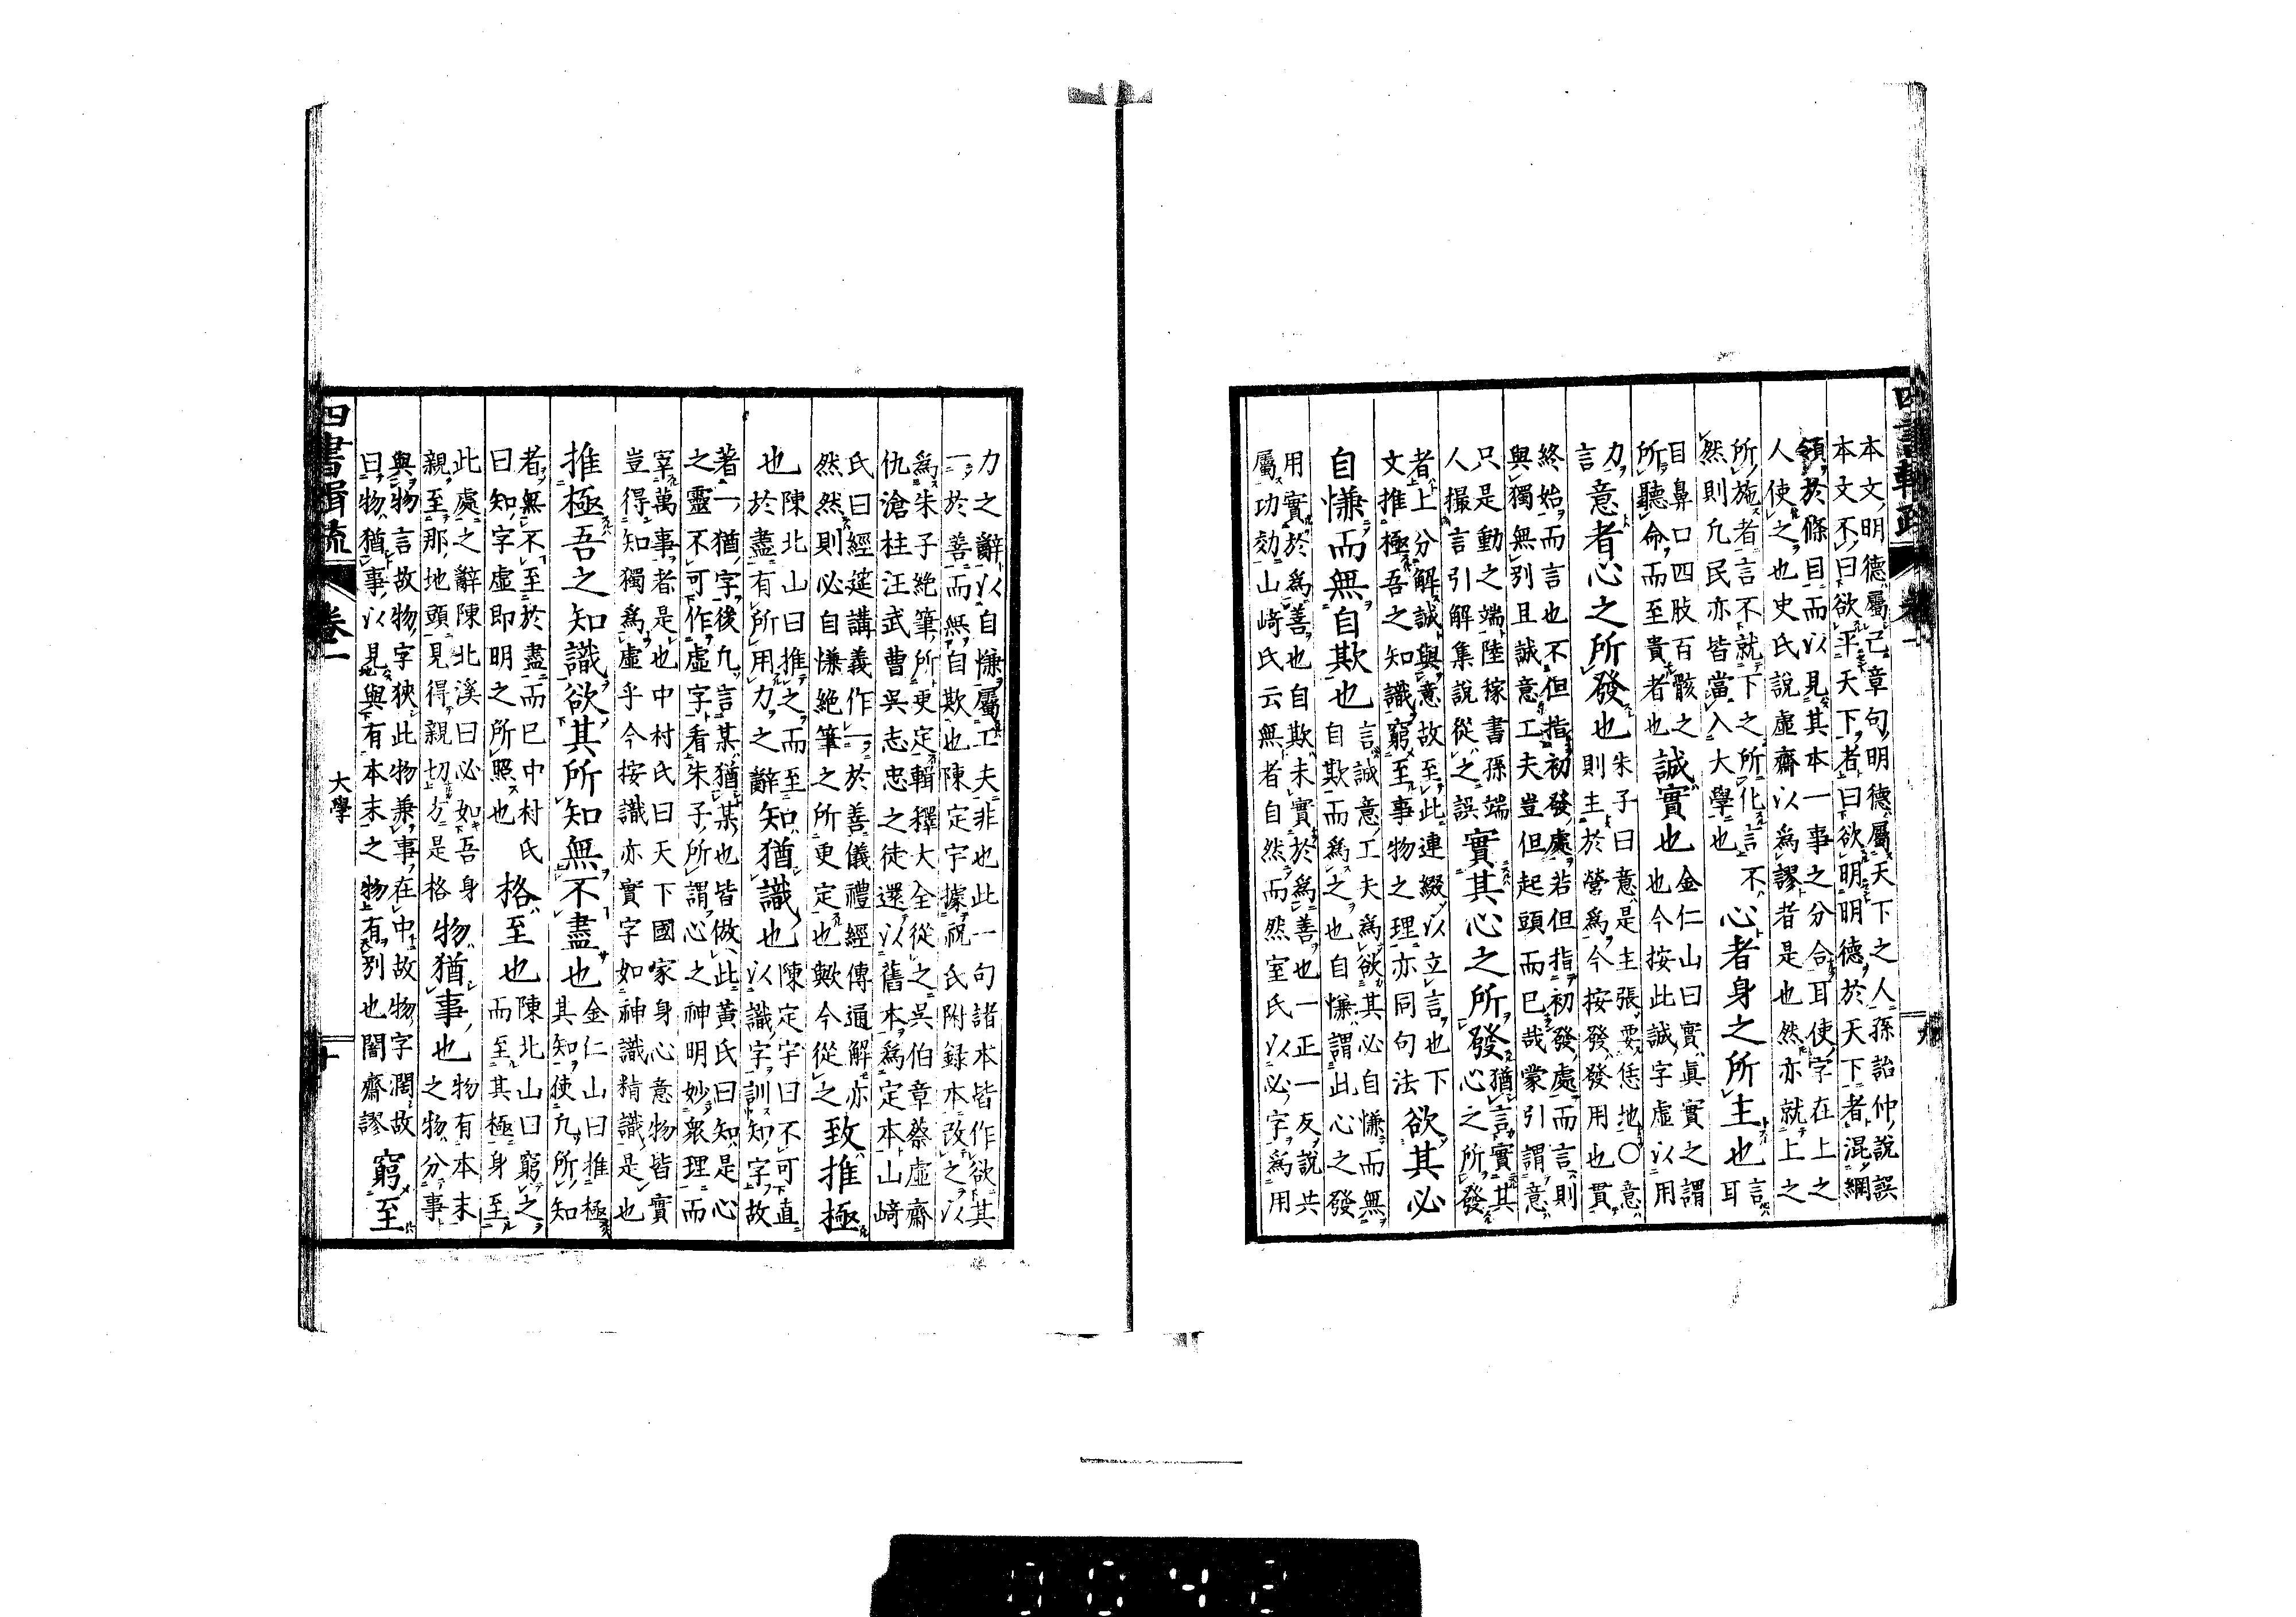 四書輯疏
卷一
九
本文明德屬己章句明德屬天下之人孫詒仲說誤
本文不曰欲平天下者曰欲明明德於天下者混網
領於條目而以見其本一事之分合耳使字在上之
人使之也史氏說虛齋以爲謬者是也然亦就上之
所施者言不就下之所化言不
然則凡民亦皆當入大學也
心者身之所主也
言耳
目鼻口四肢百骸之
所聽命而至貴者也
誠實也
金仁山曰實眞實之謂
也今按此誠字虛以用
力
言
意者心之所發也
朱子曰意是主張要恁地○意
則主於營爲今按發發用也貫
終始而言也不但指初發處若但指初發處而言則
與獨無別且誠意工夫豈但起頭而已哉蒙引謂意
只是動之端陸稼書孫端
人撮言引解集說從之誤
實其心之所發
猶言實其
心之所發
者上分解誠與意故至此連綴以立言也下
文推極吾之知識窮至事物之理亦同句法
欲其必
自慊而無自欺也
言誠意工夫爲欲其必自慊而無
自欺而爲之也自慊謂此心之發
用實於爲善也自欺未實於爲善也一正一反說共
屬功効山﨑氏云無者自然而然室氏以必字爲用
力之辭以自慊屬工夫非也此一句諸本皆作欲其
一於善而無自欺也陳定宇據祝氏附録本改之以
爲朱子絶筆所更定輯釋大全從之吳伯章蔡虛齋
仇滄柱汪武曹吳志忠之徒還以舊本爲定本山﨑
氏曰經筵講義作一於善儀禮經傳通解亦
然然則必自慊絶筆之所更定也歟今從之
致推極
也
陳北山曰推之而至
於盡有所用力之辭
知猶識也
陳定宇曰不可直
以識字訓知字故
著一猶字後凡言某猶某也皆倣此黃氏曰知是心
之靈不可作虛字看朱子所謂心之神明妙衆理而
宰萬事者是也中村氏曰天下國家身心意物皆實
豈得知獨爲虛乎今按識亦實字如神識精識是也
推極吾之知識欲其所知無不盡也
金仁山曰推極
其知使凡所知
者無不至於盡而已中村氏
曰知字虛即明之所照也
格至也
陳北山曰窮之
而至其極身至
此處之辭陳北溪曰必如吾身
親至那地頭見得親切方是格
物猶事也
物有本末
之物分事
與物言故物字狹此物兼事在中故物字濶故
曰物猶事以見與有本末之物有別也闇齋謬
窮至
四書輯疏
卷一
大學
十
0042